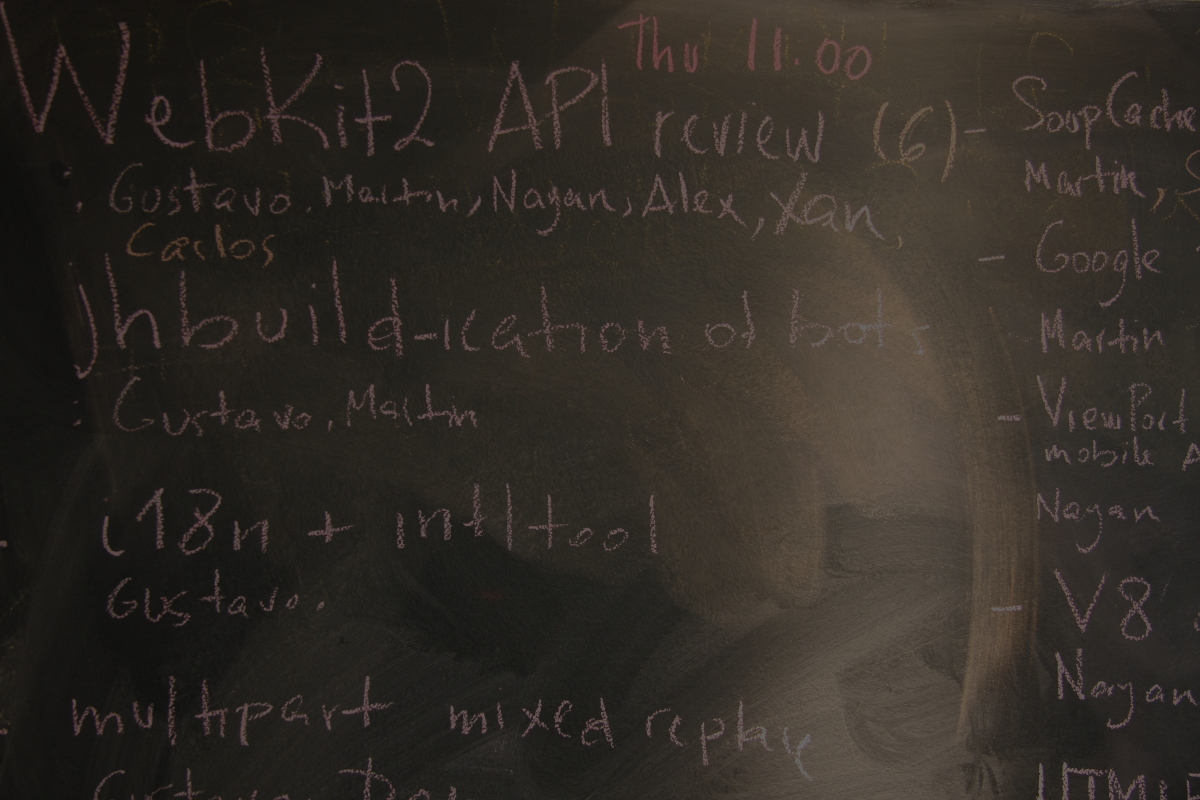 Thu 11.00
WebKit2 API review (6)
: Gustavo, Martin, Nayan, Alex, Xan,
Carlos
jhbuild-ication of bots
: Gustavo, Martin
i18n + intltool
Gustavo.
multipart mixed replay
Gustavo
- SoupCache
Martin,
- Google
Martin
- ViewPort
mobile A
Nayan
- V8
Nayan